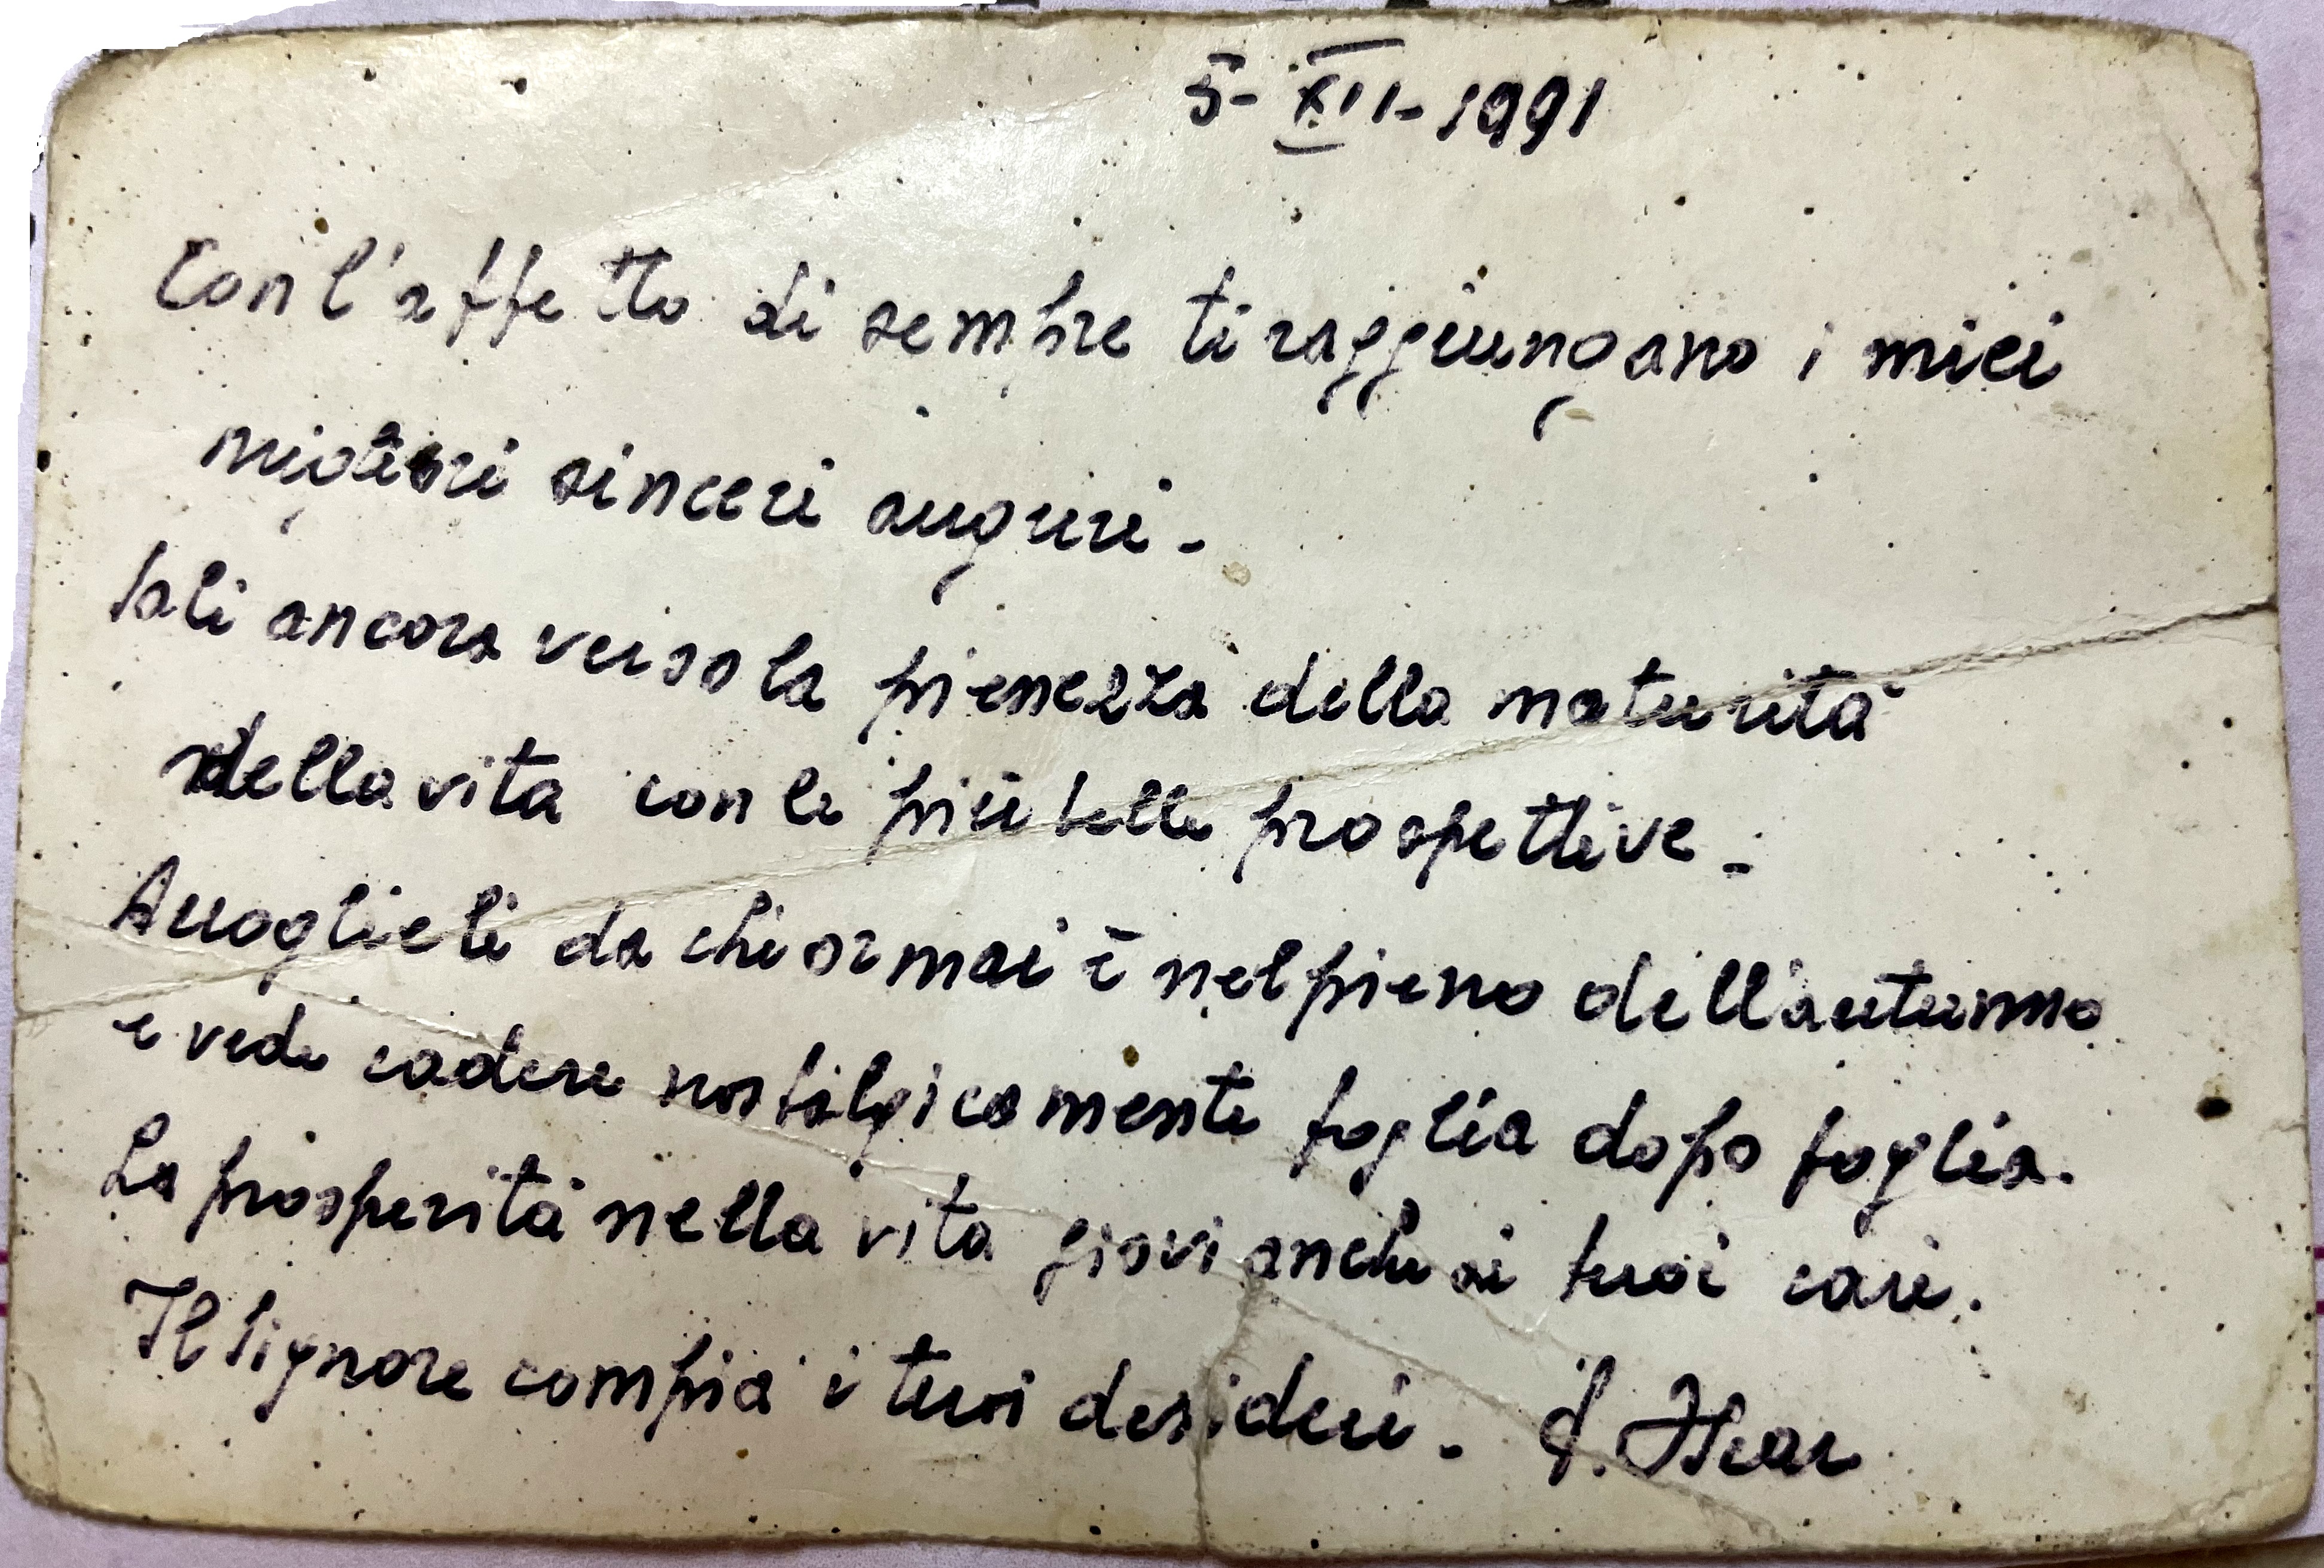 5-XII-1991
Con l'affetto di sempre ti raggiungano i miei
migliori sinceri auguri-
Sali ancora verso la pienezza della maturità
della vita con le più belle prospettive-
Accoglieli da chi ormai è nel pieno dell'autunno
e vede cadere nostalgicamente foglia dopo foglia.
La prosperità nella vita giovi anche ai tuoi cari.
Il Signore compia i tuoi desideri-